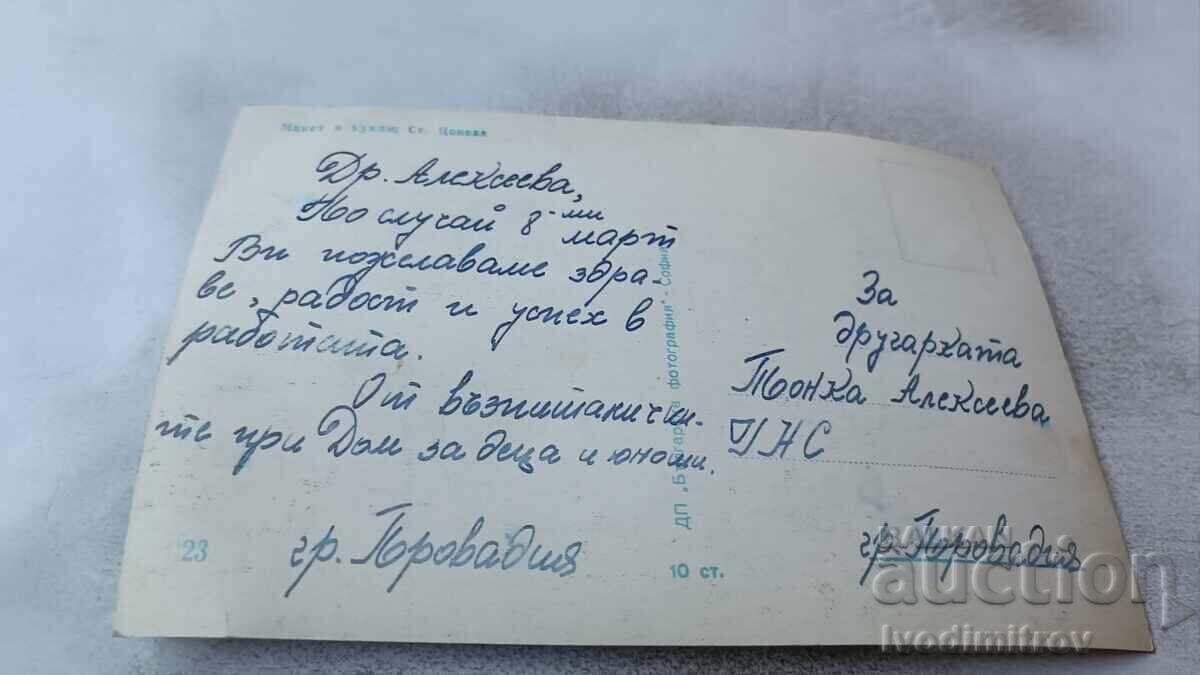 Макет и кукли: Ст. Цонева
Др. Алексиева,
По случай 8-ми март
Ви пожелаваме здра-
ве, радост и успех в
работата.
От възпитанички-
те при Дом за деца и юноши.
гр. Провадия
23
ДП „Българска фотография" - София
10 ст.
За
другарката
Тонка Алексиева
ГНС
гр. Провадия
BALKAN
auction
Ivodimitrov